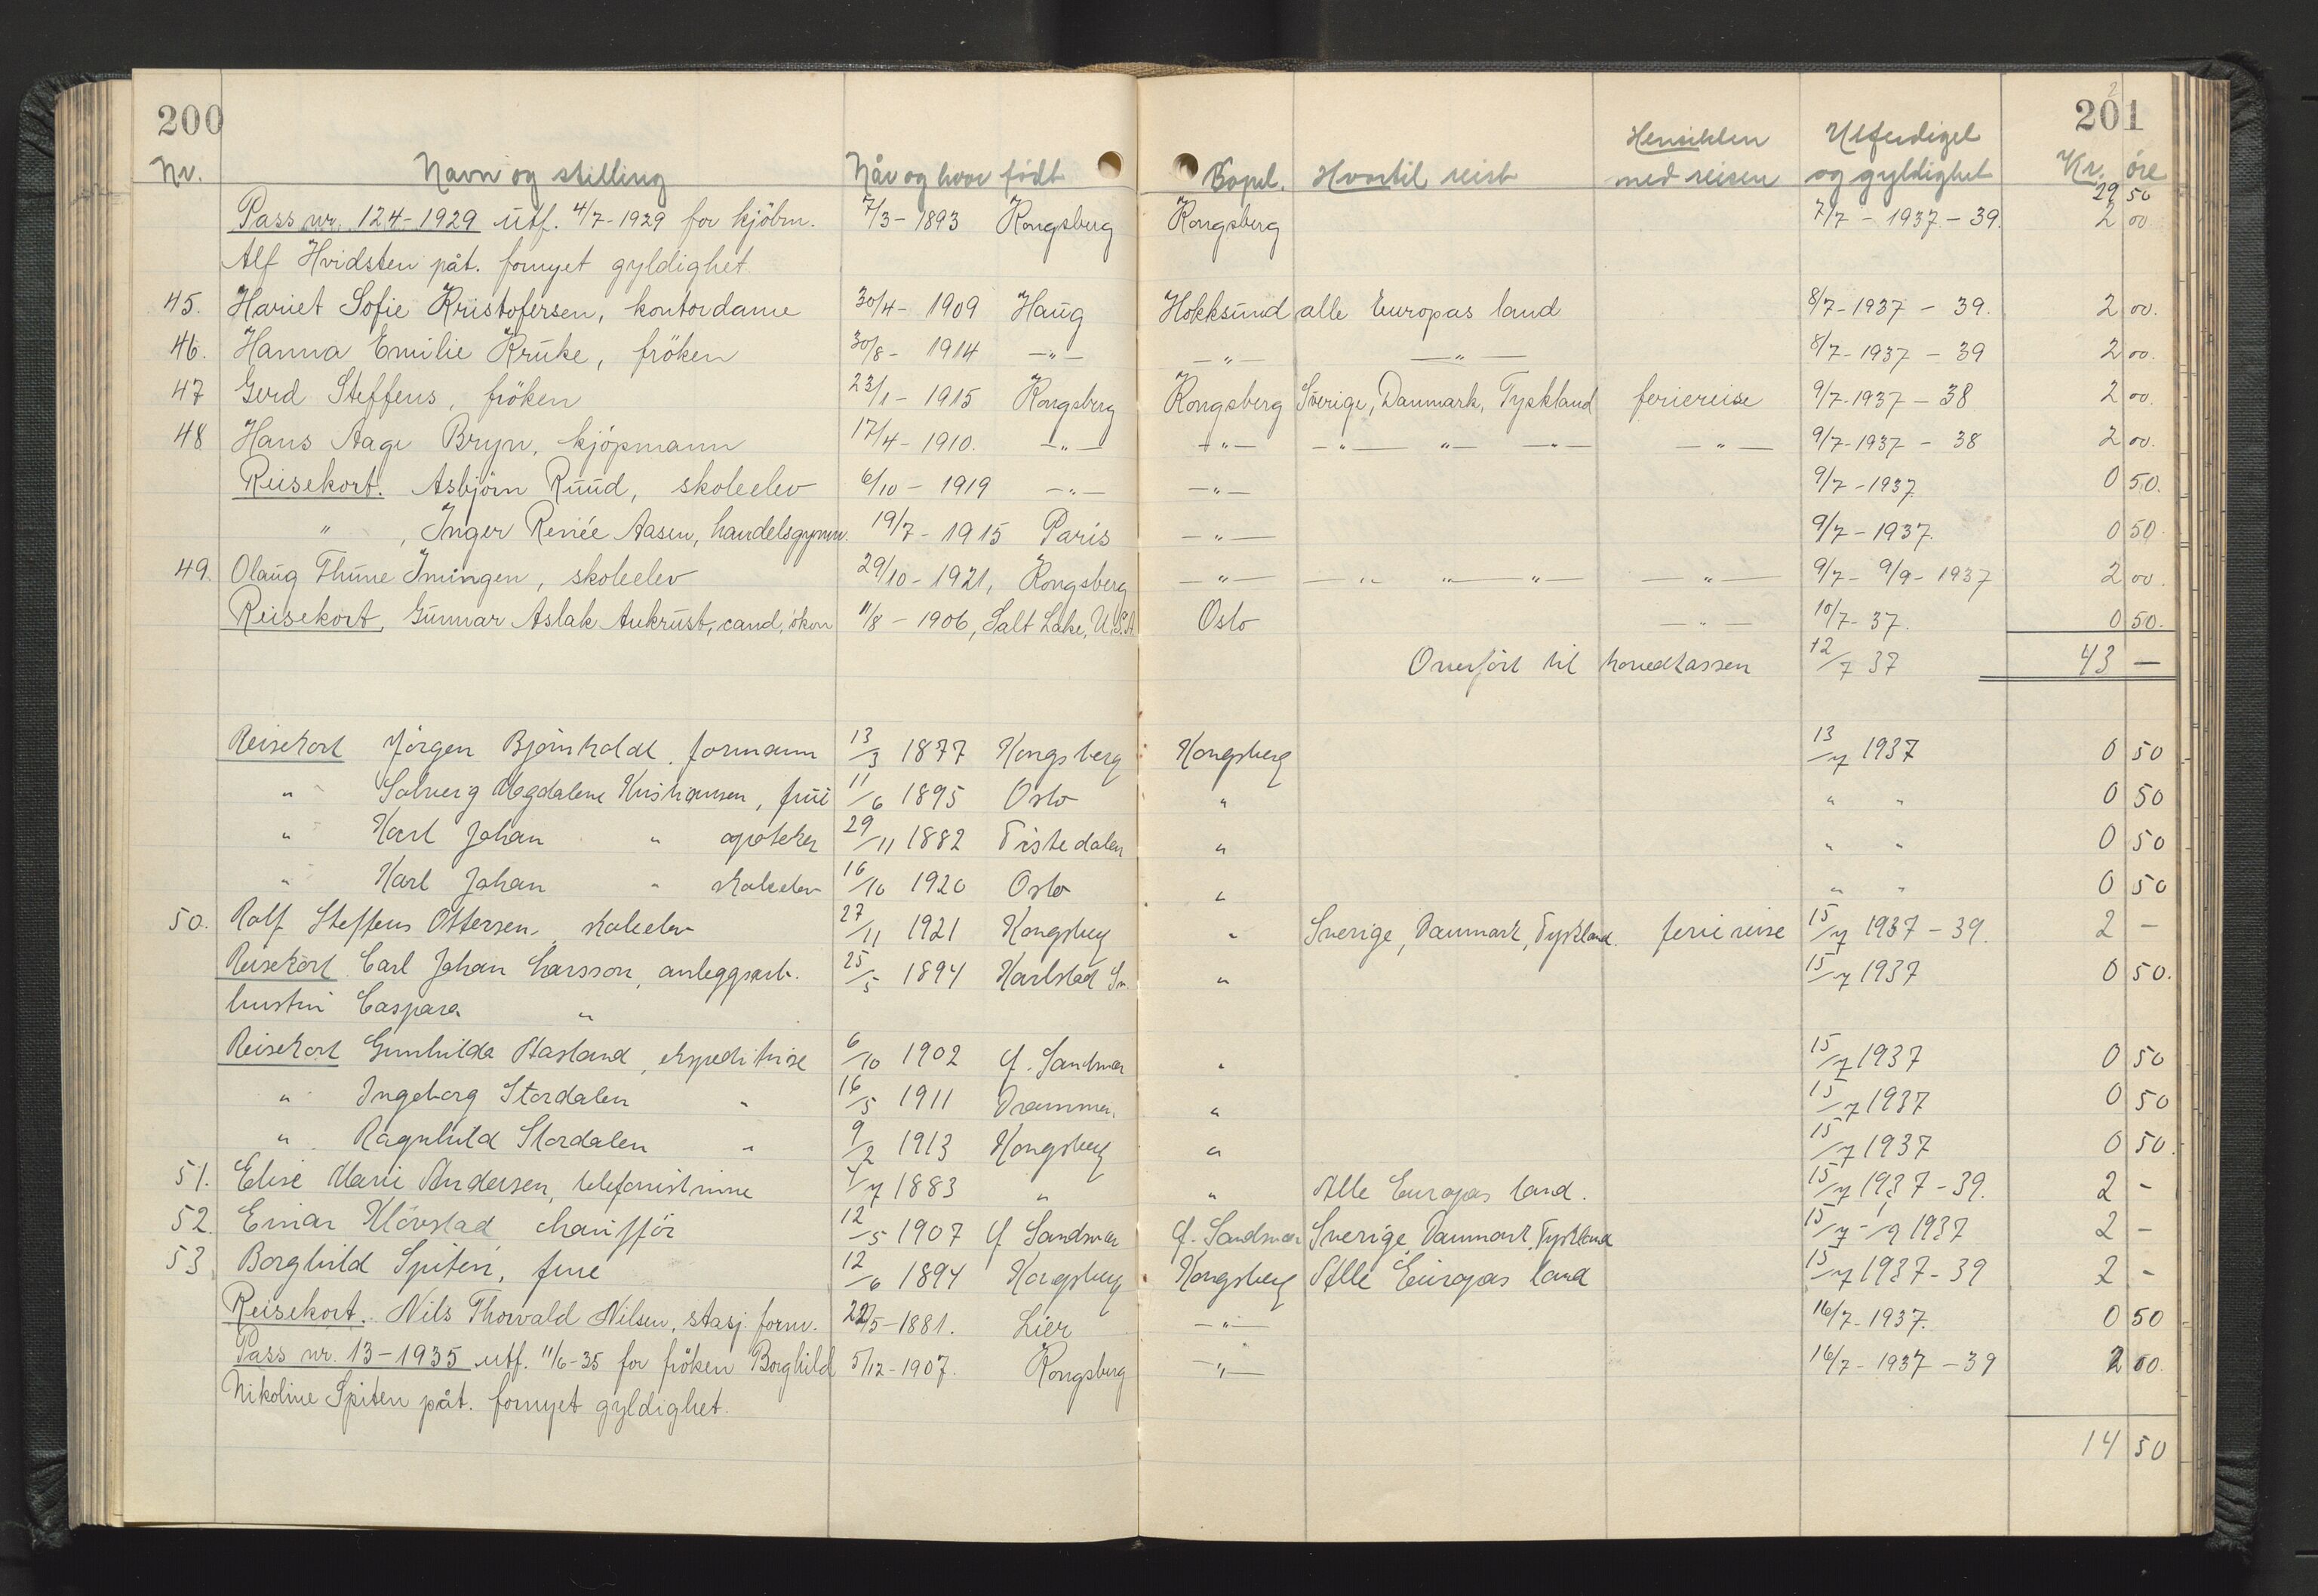 200
201
Nr. Navn og stilling Når og hvor født Bopel. Hvortil reist Hensikten med reisen Utferdiget og gyldighet Kr. øre
29 50
Pass nr. 124-1929 utf. 4/7-1929 for kjöbm. 7/3-1893 Kongsberg Kongsberg 7/7-1937-39. 2 00
Alf Hvidsten påt. fornyet gyldighet
45. Hariet Sofie Kristofersen, kontordame 30/4- 1909 Haug Hokksund alle Europas land 8/7-1937 - 39. 2 00.
46. Hanna Emilie Kruke, fröken 30/8- 1914 -"- -"- -"- 8/7-1937 - 39 2 00.
47 Gerd Steffens, fröken 23/1- 1915 Kongsberg Kongsberg Sverige, Danmark, Tyskland feriereise 9/7-1937 - 38 2 00.
48 Hans Aage Bryn, kjöpmann 17/4-1910. -"- -"- -"- "- -"- -"- 9/7-1937 - 38 2 00.
Reisekort. Asbjörn Ruud, skoleelev 6/10 - 1919 -"- -"- 9/7-1937 0 50.
" , Inger Renée Aasen, handelsgymn. 19/7-1915 Paris -"- 9/7-1937. 0 50
49. Olaug Thune Imingen, skoleelev 29/10-1921, Kongsberg -"- -"- "- "- -"- 9/7- 9/9-1937 2 00.
Reisekort, Gunnar Aslak Aukrust, cand. ökon 11/8-1906, Salt Lake, U.S.A. Oslo -"- 10/7-37. 0 50.
Overfört til hovedkassen 12/7 37 43 -
Reisekort Jörgen Björnholdt, formann 13/3 1877 Kongsberg Kongsberg 13/7 1937 0 50
" Solveig Magdalene Kristiansen, frue 11/6 1895 Oslo " " " 0 50
" Karl Johan " apoteker 29/11 1882 Tistedalen " " " 0 50
" Karl Johan " skoleelev 16/10 1920 Oslo " " " 0 50
50. Rolf Steffens Ottersen, skoleelev 27/11 1921 Kongsberg " Sverige, Danmark, Tyskland. feriereise 15/7 1937-39. 2 -
Reisekort Carl Johan Larsson, anleggsarb. 25/5 1894 Karlstad Sv. " 15/7 1937 0 50.
hustru Caspara "
Reisekort Gunhilda Aasland, ekspeditrise 6/10 1902 Y. Sandsvær " 15/7 1937 0 50
" Ingeborg Stordalen " 16/5 1911 Drammen. " 15/7 1937 0 50
" Ragnhild Stordalen " 9/2 1913 Kongsberg " 15/7 1937 0 50.
51. Elise Marie Andersen, telefonistinne 4/7 1883 " " Alle Europas land. 15/7 1937-39. 2 -
52. Einar Klövstad chaufför 12/5 1907 Y Sandsvær Y. Sandsvær Sverige, Danmark, Tyskland 15/7 - 1/9 1937 2 -
53 Borghild Spiten, frue 12/6 1894 Kongsberg Kongsberg Alle Europas land 15/7 1937-39 2 -
Reisekort. Nils Thorvald Nilsen, stasj. form. 22/5-1881. Lier -"- 16/7-1937. 0 50
Pass nr. 13-1935 utf. 11/6-35 for fröken Borghild 5/12-1907. Kongsberg -"- 16/7-1937-39 2 00.
Nikoline Spiten påt. fornyet gyldighet.
14 50